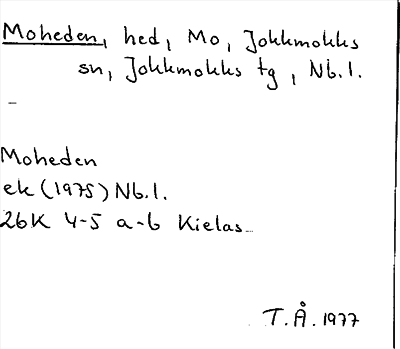 Moheden, hed, Mo, Jokkmokks
sn, Jokkmokks tg, Nb.l.
–
Moheden
ek (1975) Nb.l.
26K 4-5 a-b Kielas
T.Å. 1977